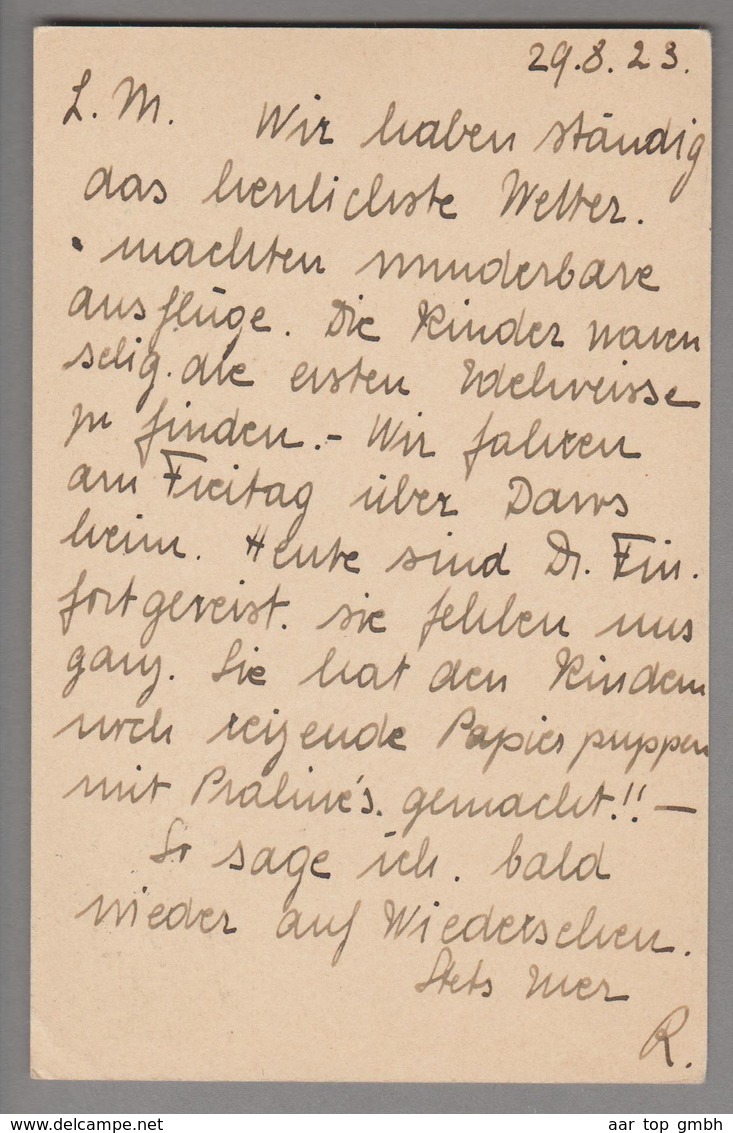 29.8.23.
L. M. Wir haben ständig
das herrlichste Wetter.
machten wunderbare
ausflüge. Die Kinder waren
selig. die ersten Edelweisse
zu finden. - Wir fahren
am Freitag über Davos
heim. Heute sind Dr. Fin.
fortgereist. sie fehlen uns
ganz. Sie hat den Kindern
noch reizende Papierpuppen
mit Praliné's. gemacht!! —
So sage ich. bald
wieder auf Wiedersehen.
Stets
R.
delcampe.net
aar top gmbh